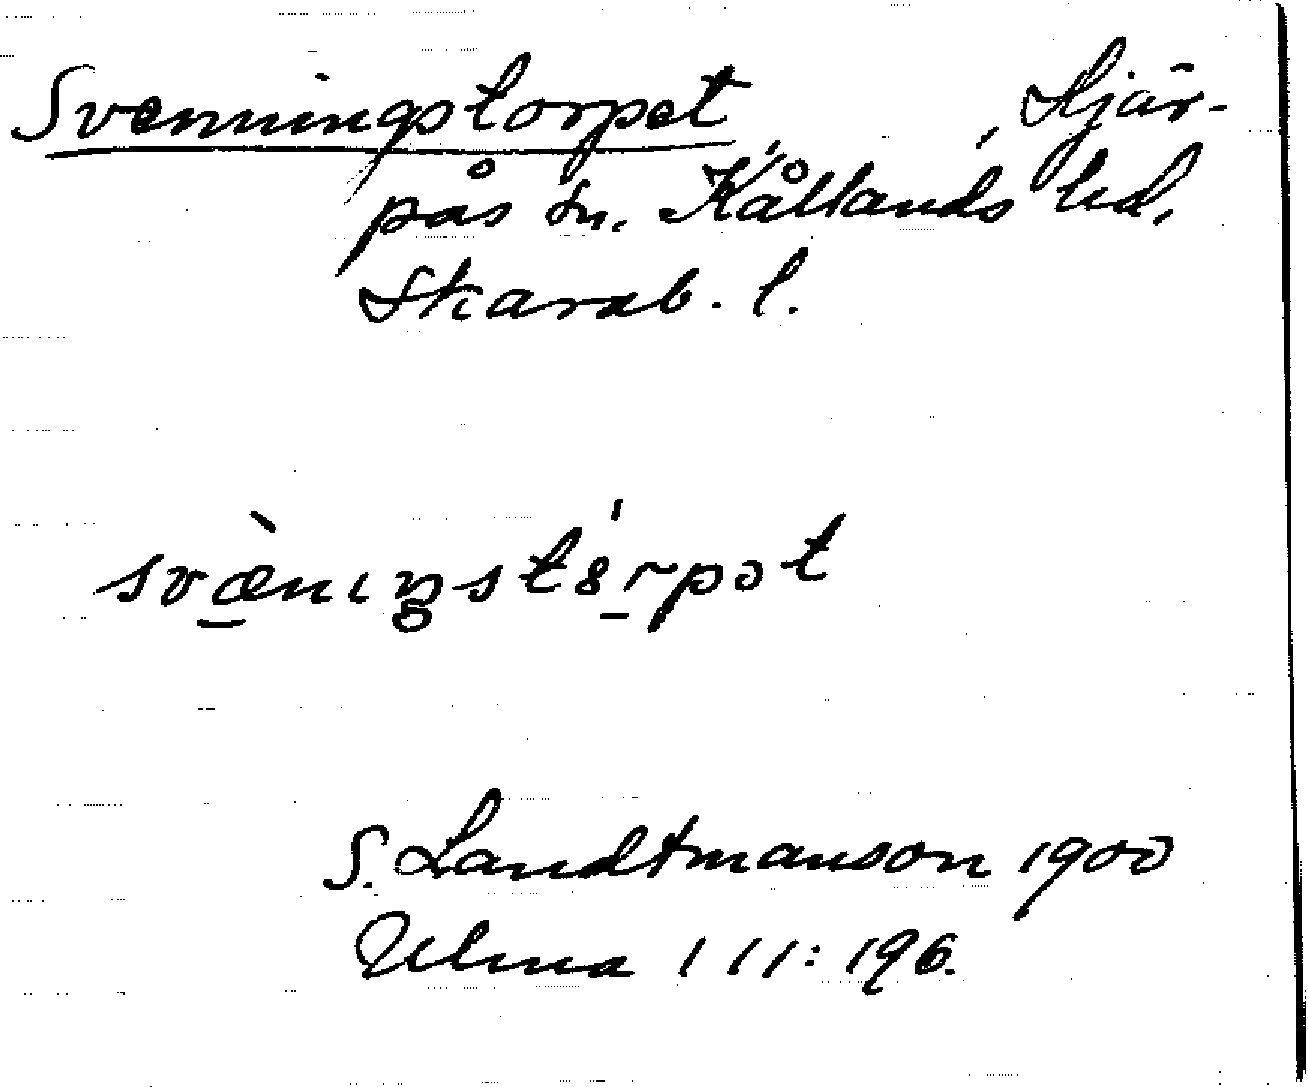 Svenningstorpet, Hjär-
pås sn. Kållands hd,
Skarab. l.
svæ̀nıŋstó̱rpət
S. Landtmanson 1900
Ulma 111:196.